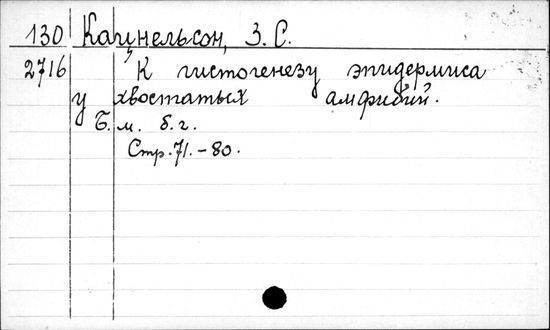 130 Кацнельсон, З. С.
2716 К гистогенезу эпидермиса
у хвостатых амфибий.
Б. м. б. г.
Стр. 71.-80.